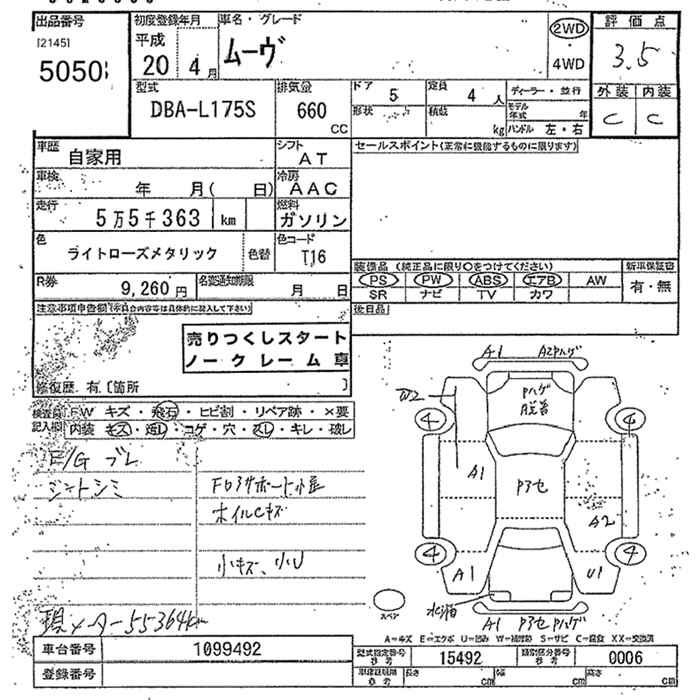 出品番号
[2145]
5050
初度登録年月
平成
20年 4月
車名・グレード
ムーヴ
2WD
・
4WD
評価点
3.5
外装 内装
C C
型式
DBA-L175S
排気量
660
CC
ドア
5
定員
4人
形状
積載
kg
ディーラー・並行
モデル年式 年
ハンドル 左・右
車歴
自家用
シフト
AT
セールスポイント(正常に機能するものに限ります)
車検
年 月( 日)
冷房
AAC
走行
5万5千363 km
燃料
ガソリン
色
ライトローズメタリック
色替
色コード
T16
R券
9,260円
名変通知期限
月 日
装備品 (純正品に限り○をつけてください)
PS PW ABS エアB AW
SR ナビ TV カワ
新車保証書
有・無
後日品
注意事項申告欄
売りつくしスタート
ノークレーム車
修復歴 有〔箇所 〕
検査員記入欄
FW キズ・飛石・ヒビ割・リペア跡・×要
内装 キズ・汚レ・コゲ・穴・スレ・キレ・破レ
シートシミ
ホイルCキズ
小キズ、小U
現メーター55364km
A1
A2Pハゲ
W2
Pハゲ
4
4
A1
Pアセ
A2
4
4
A1
U1
A1 Pアセ Pハゲ
スペア
A=キズ E=エクボ U=凹み W=補修跡 S=サビ C=腐食 XX=交換済
車台番号
1099492
登録番号
型式指定番号
参考
15492
類別区分番号
参考
0006
長さ cm
幅 cm
高さ cm